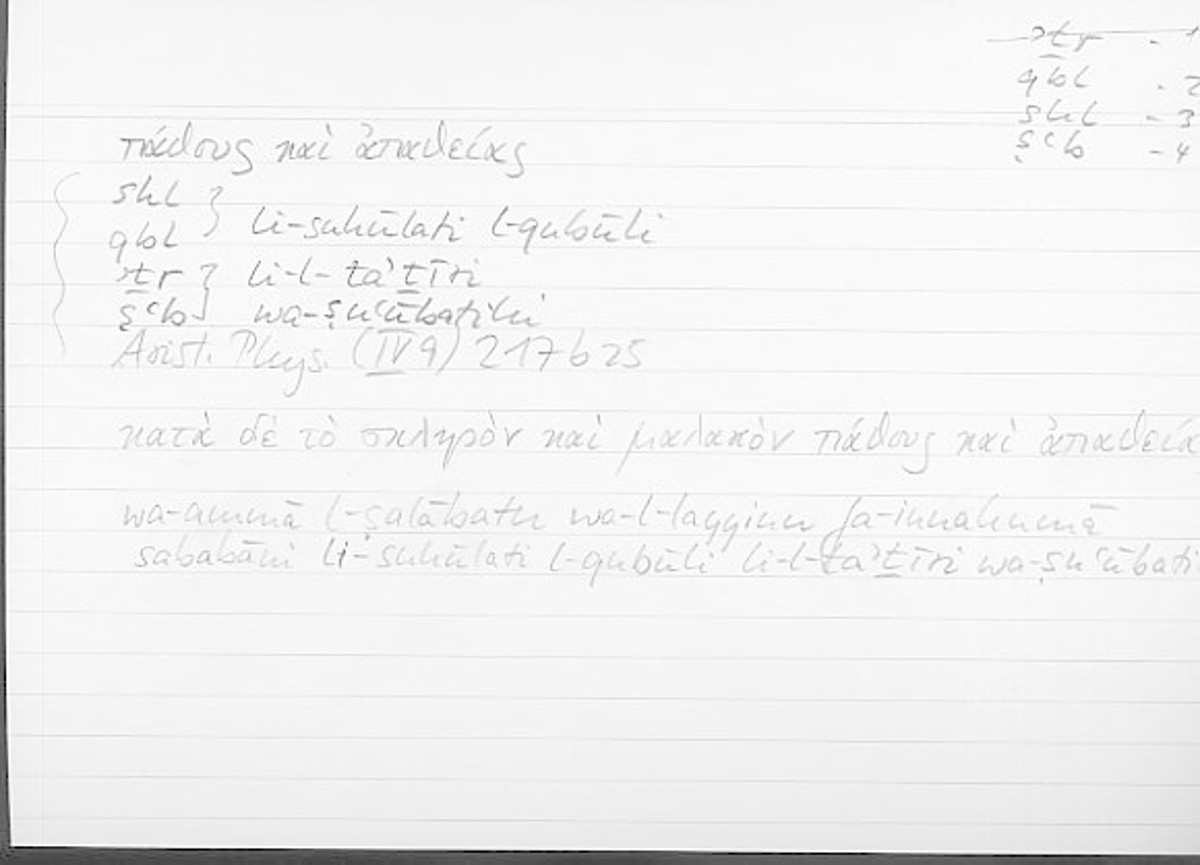 ʾṯr - 1
qbl - 2
shl - 3
ṣʿb - 4
πάθους καὶ ἀπαθείας
shl
qbl } li-suhūlati l-qubūli
ʾṯr } li-l-taʾṯīri
ṣʿb wa-ṣuʿūbatihi
Arist. Phys. (IV 9) 217 b 25
κατὰ δὲ τὸ σκληρὸν καὶ μαλακὸν πάθους καὶ ἀπαθεία
wa-ammā l-ṣalābatu wa-l-layyinu fa-innahumā
sababāni li-suhūlati l-qubūli li-l-taʾṯīri wa-ṣuʿūbati